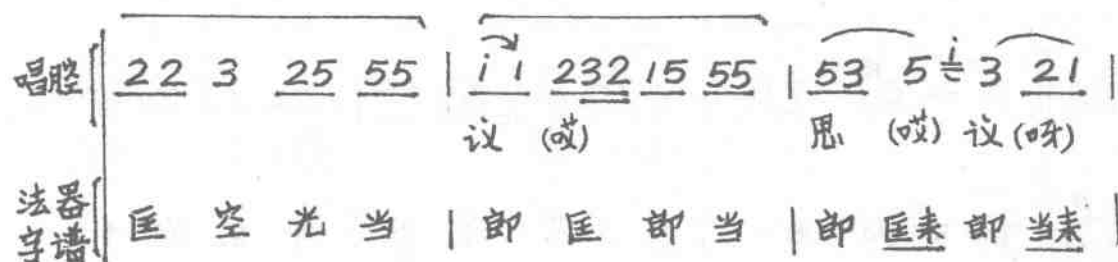 唱腔 22 3 25 55 | i 1 232 15 55 | 53 5 i 3 21 |
议 (哎) 思 (哎) 议 (呀)
法器字谱 匡 空 光 当 | 郎 匡 郎 当 | 郎 匡来 郎 当来 |